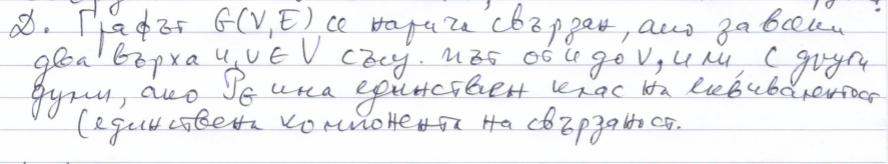 Д. Графът G(V,E) се нарича свързан, ако за всеки
два върха u,v ∈ V същ. път от u до v, или, с други
думи, ако ρ_G има единствен клас на еквивалентост
(единствена компонента на свързаност.